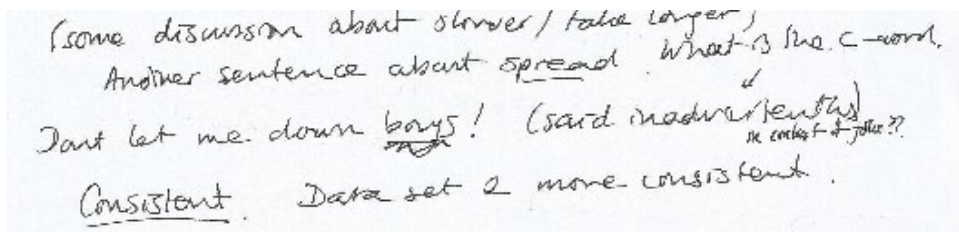 (some discussion about slower / take longer)
Another sentence about spread. What is the c-word.
Dont let me down boys! (said inadvertently)
in context of
Consistent. Data set 2 more consistent.